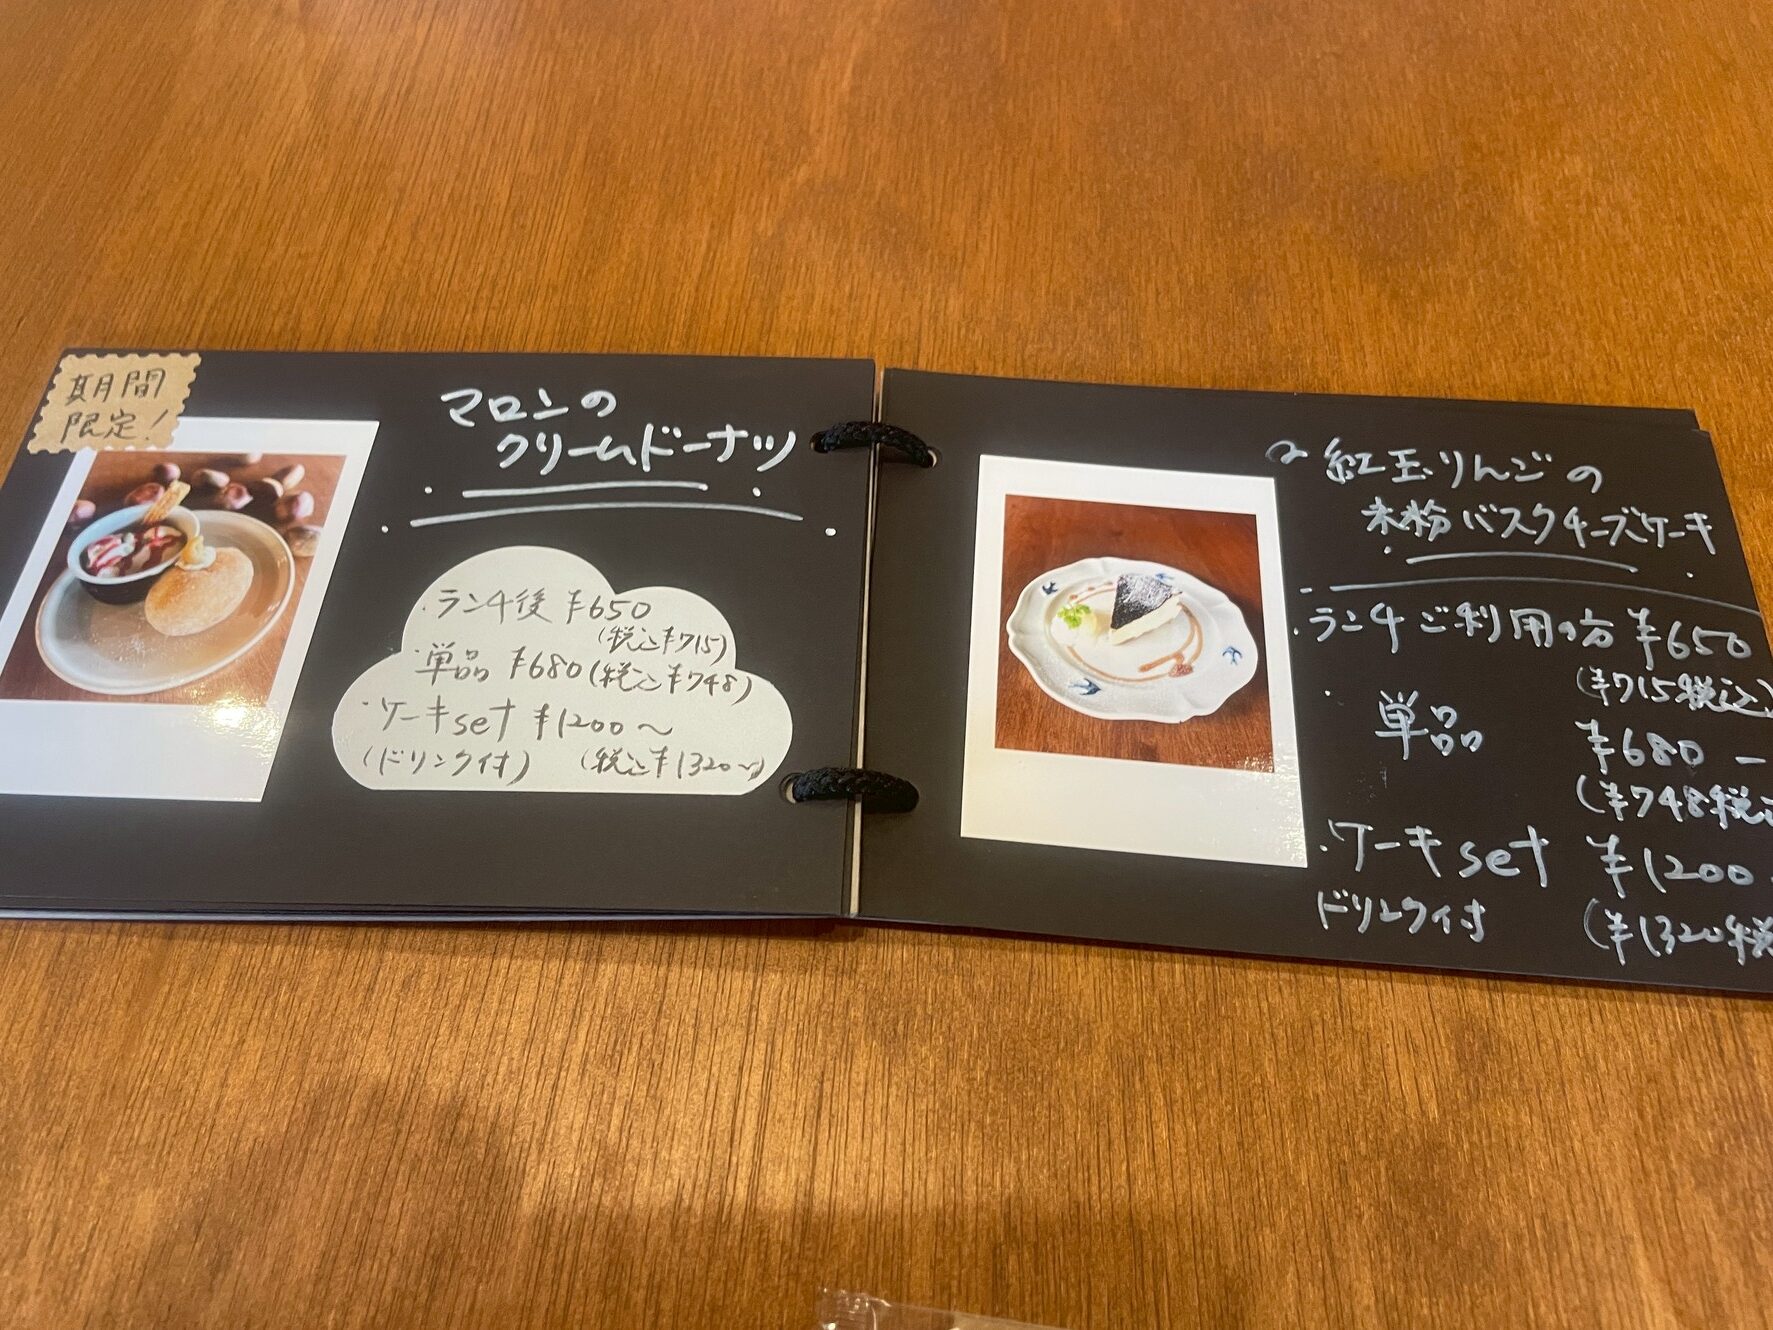 期間
限定!
マロンの
クリームドーナツ
・ランチ後 ¥650
(税込¥715)
・単品 ¥680(税込¥748)
・ケーキset ¥1200〜
(ドリンク付) (税込¥1320〜)
紅玉りんごの
米粉バスクチーズケーキ
・ランチご利用の方 ¥650
(¥715税込)
・単品 ¥680
(¥748税込
・ケーキset ¥1200
ドリンク付 (¥1320税